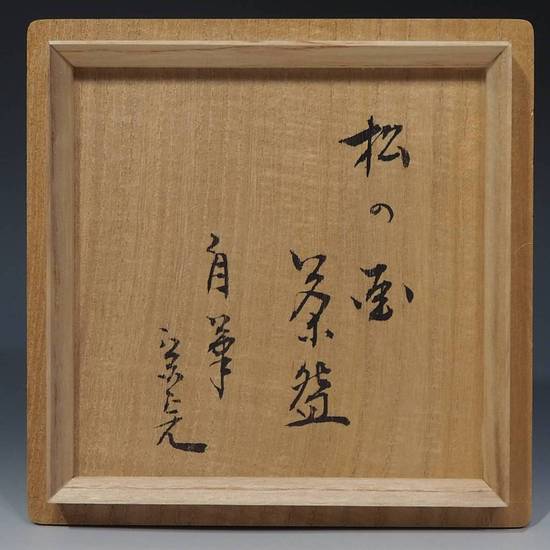 松の画
茶盌
自筆